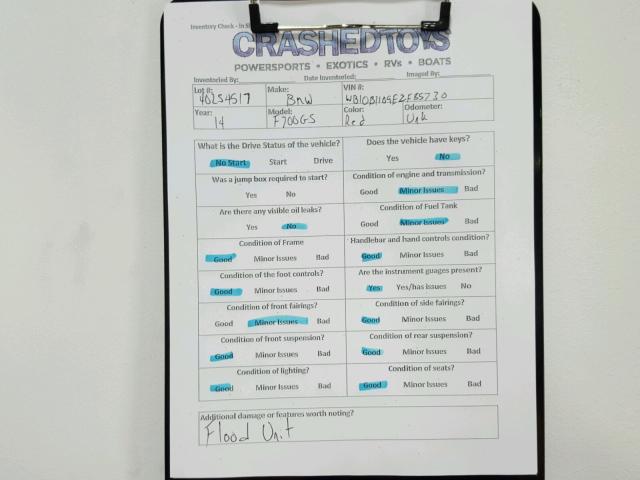 Inventory Check - In S
CRASHEDTOYS
POWERSPORTS • EXOTICS • RVs • BOATS
Inventoried By: Date Inventoried: Imaged By:
Lot #: Make: VIN #:
40254517 BMW
Year: Model: Color: Odometer:
14 F700GS Red Unk
What is the Drive Status of the vehicle? Does the vehicle have keys?
No Start Start Drive Yes No
Was a jump box required to start? Condition of engine and transmission?
Yes No Good Minor Issues Bad
Are there any visible oil leaks? Condition of Fuel Tank
Yes No Good Minor Issues Bad
Condition of Frame Handlebar and hand controls condition?
Good Minor Issues Bad Good Minor Issues Bad
Condition of the foot controls? Are the instrument guages present?
Good Minor Issues Bad Yes Yes/has issues No
Condition of front fairings? Condition of side fairings?
Good Minor Issues Bad Good Minor Issues Bad
Condition of front suspension? Condition of rear suspension?
Good Minor Issues Bad Good Minor Issues Bad
Condition of lighting? Condition of seats?
Good Minor Issues Bad Good Minor Issues Bad
Additional damage or features worth noting?
Flood Unit